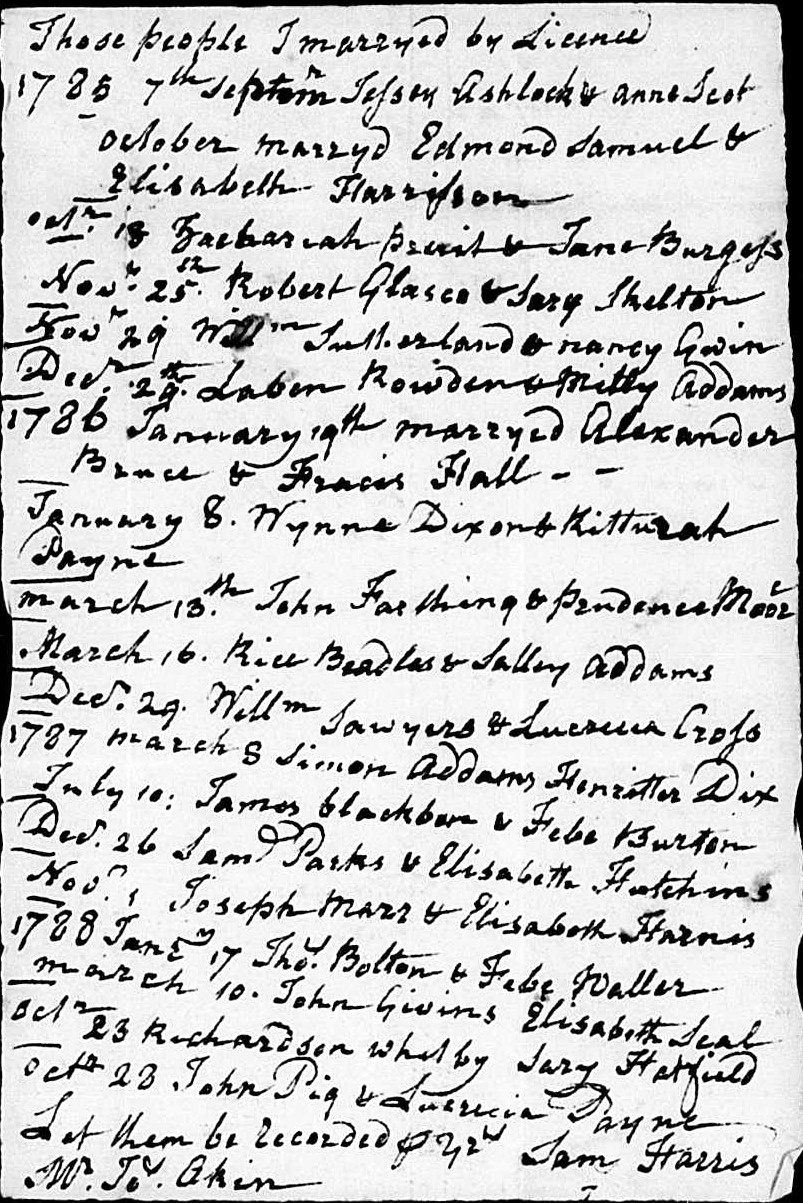 Those people I marryed by Licence
1785 7th Septemr Jessey Ashlock & anne Scot
october marryd Edmond Samuel &
Elisabeth Harrisson
octr. 18 Zachariah prewit & Jane Burgess
Novr. 25th. Robert Glasco & Sary Skelton
Novr 29 Willm Sutherland & nancy Gwin
Decr. 29th. Laben Rowden & Milly Addams
1786 January 19th marryed Alexander
Bruce & Fracis Hall - -
January 8. Wynne Dixon & Kitturah
Payne
march 13.th John Farthing & prudence Moor
March 16. Rice Beadles & Salley Addams
Decr. 29. Willm Sawyers & Lucrecia Cross
1787 march 8 Simon Addams Henritter Dix
July 10: James blackbon & Febe Burton
Decr. 26 Saml Parks & Elisabeth Hutchins
Novr. 1 Joseph Marr & Elisabeth Harris
1788 Jany 17 Thos. Bolton & Febe Waller
march 10. John Givins Elisabeth Seal
octr 23 Richardson whelby Sary Hatfield
octr 23 John Pig & Lucrecia Payne
Let them be recorded Sam Harris
Mr. Akin